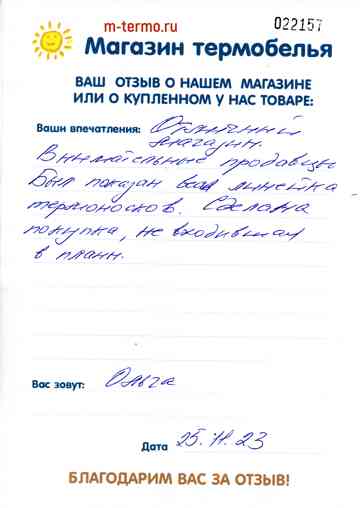 m-termo.ru
022157
Магазин термобелья
ВАШ ОТЗЫВ О НАШЕМ МАГАЗИНЕ
ИЛИ О КУПЛЕННОМ У НАС ТОВАРЕ:
Ваши впечатления: Отличный
магазин.
Внимательные продавцы
Был показан вся линейка
термоносков. Сделана
покупка, не входившая
в планы.
Вас зовут: Ольга
Дата 25.11.23
БЛАГОДАРИМ ВАС ЗА ОТЗЫВ!